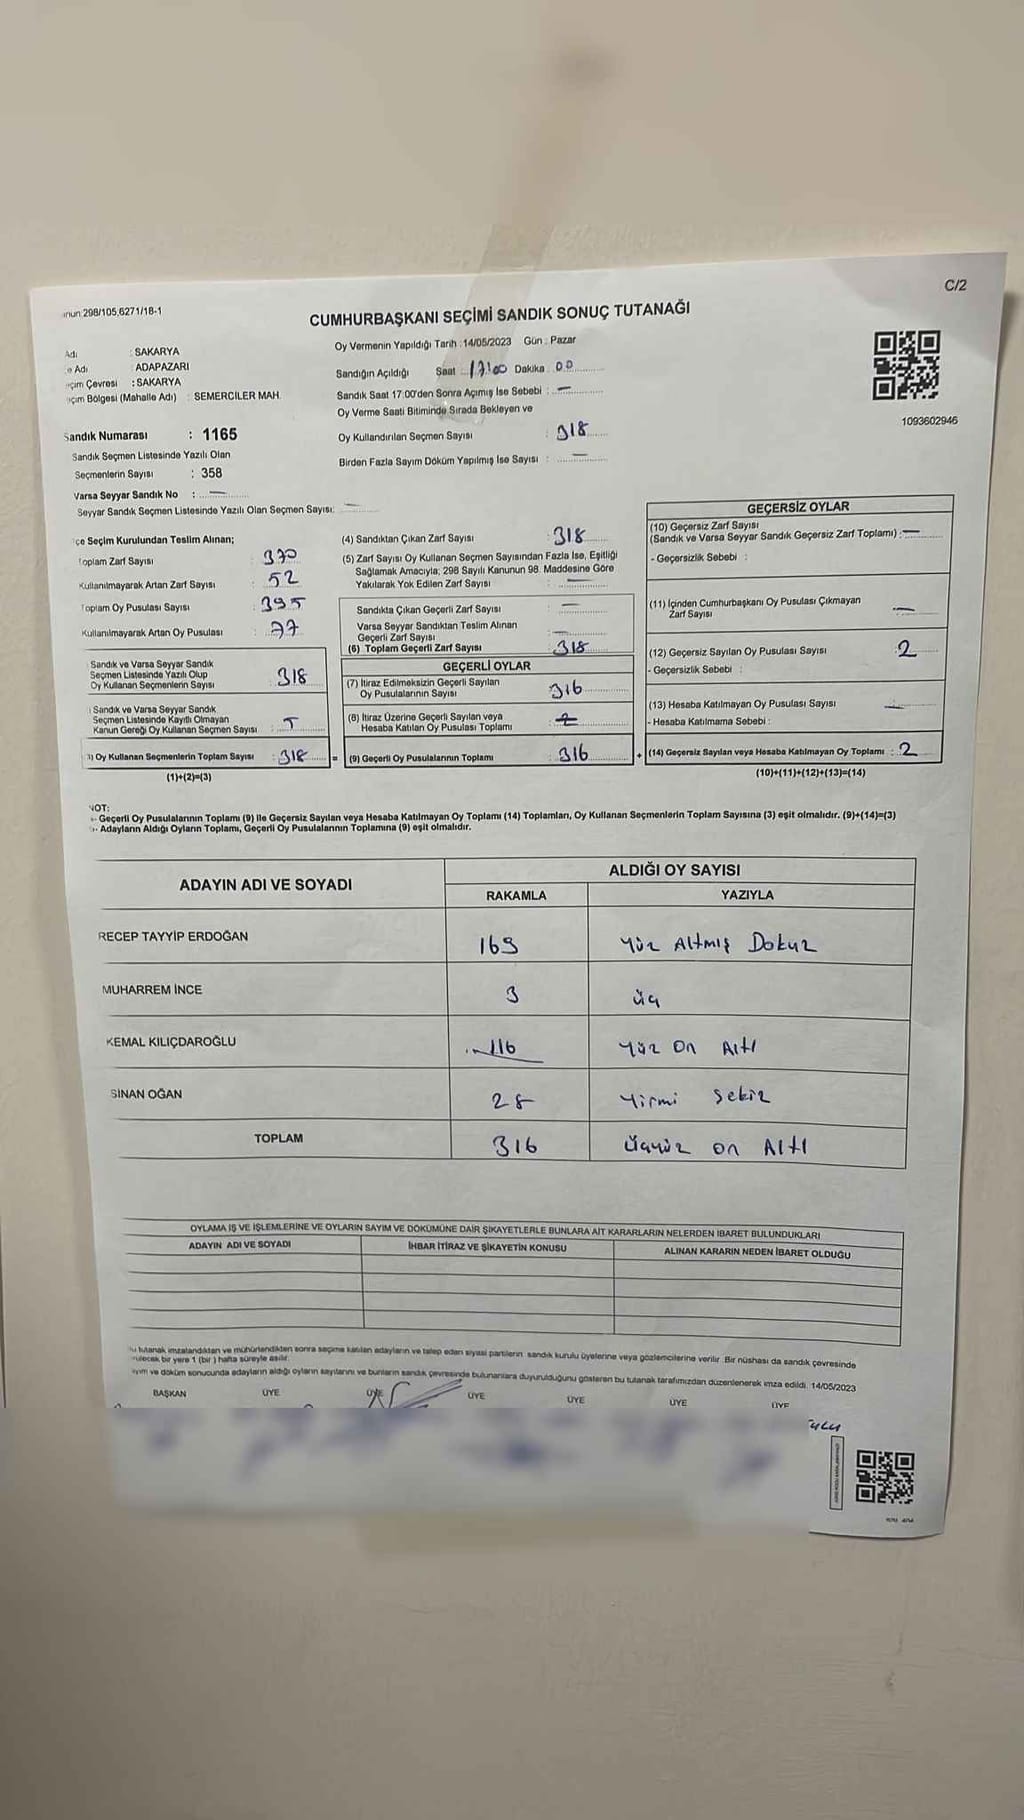 298/105,6271/18-1
C/2
CUMHURBAŞKANI SEÇİMİ SANDIK SONUÇ TUTANAĞI
Adı : SAKARYA
Adı : ADAPAZARI
Çevresi : SAKARYA
Bölgesi (Mahalle Adı) : SEMERCİLER MAH.
Sandık Numarası : 1165
Sandık Seçmen Listesinde Yazılı Olan
Seçmenlerin Sayısı : 358
Varsa Seyyar Sandık No : —
Seyyar Sandık Seçmen Listesinde Yazılı Olan Seçmen Sayısı: —
Oy Vermenin Yapıldığı Tarih :14/05/2023 Gün : Pazar
Sandığın Açıldığı Saat : 17:00 Dakika : 00
Sandık Saat 17:00'den Sonra Açımış İse Sebebi : —
Oy Verme Saati Bitiminde Sırada Bekleyen ve
Oy Kullandırılan Seçmen Sayısı : 318
Birden Fazla Sayım Döküm Yapılmış İse Sayısı : —
1093602946
Seçim Kurulundan Teslim Alınan;
Toplam Zarf Sayısı : 370
Kullanılmayarak Artan Zarf Sayısı : 52
Toplam Oy Pusulası Sayısı : 395
Kullanılmayarak Artan Oy Pusulası : 77
Sandık ve Varsa Seyyar Sandık
Seçmen Listesinde Yazılı Olup
Oy Kullanan Seçmenlerin Sayısı : 318
Sandık ve Varsa Seyyar Sandık
Seçmen Listesinde Kayıtlı Olmayan
Kanun Gereği Oy Kullanan Seçmen Sayısı :
Oy Kullanan Seçmenlerin Toplam Sayısı : 318 =
(1)+(2)=(3)
(4) Sandıktan Çıkan Zarf Sayısı : 318
(5) Zarf Sayısı Oy Kullanan Seçmen Sayısından Fazla İse, Eşitliği
Sağlamak Amacıyla; 298 Sayılı Kanunun 98. Maddesine Göre
Yakılarak Yok Edilen Zarf Sayısı : —
Sandıkta Çıkan Geçerli Zarf Sayısı : —
Varsa Seyyar Sandıktan Teslim Alınan
Geçerli Zarf Sayısı : —
(6) Toplam Geçerli Zarf Sayısı : 318
GEÇERLİ OYLAR
(7) İtiraz Edilmeksizin Geçerli Sayılan
Oy Pusulalarının Sayısı : 316
(8) İtiraz Üzerine Geçerli Sayılan veya
Hesaba Katılan Oy Pusulası Toplamı :
(9) Geçerli Oy Pusulalarının Toplamı : 316 +
GEÇERSİZ OYLAR
(10) Geçersiz Zarf Sayısı
(Sandık ve Varsa Seyyar Sandık Geçersiz Zarf Toplamı) : —
- Geçersizlik Sebebi :
(11) İçinden Cumhurbaşkanı Oy Pusulası Çıkmayan
Zarf Sayısı : —
(12) Geçersiz Sayılan Oy Pusulası Sayısı : 2
- Geçersizlik Sebebi :
(13) Hesaba Katılmayan Oy Pusulası Sayısı : —
- Hesaba Katılmama Sebebi :
(14) Geçersiz Sayılan veya Hesaba Katılmayan Oy Toplamı : 2
(10)+(11)+(12)+(13)=(14)
NOT:
- Geçerli Oy Pusulalarının Toplamı (9) ile Geçersiz Sayılan veya Hesaba Katılmayan Oy Toplamı (14) Toplamları, Oy Kullanan Seçmenlerin Toplam Sayısına (3) eşit olmalıdır. (9)+(14)=(3)
- Adayların Aldığı Oyların Toplamı, Geçerli Oy Pusulalarının Toplamına (9) eşit olmalıdır.
ADAYIN ADI VE SOYADI ALDIĞI OY SAYISI
RAKAMLA YAZIYLA
RECEP TAYYİP ERDOĞAN 169 Yüz Altmış Dokuz
MUHARREM İNCE 3 üç
KEMAL KILIÇDAROĞLU 116 Yüz On Altı
SİNAN OĞAN 28 Yirmi Sekiz
TOPLAM 316 Üçyüz on Altı
OYLAMA İŞ VE İŞLEMLERİNE VE OYLARIN SAYIM VE DÖKÜMÜNE DAİR ŞİKAYETLERLE BUNLARA AİT KARARLARIN NELERDEN İBARET BULUNDUKLARI
ADAYIN ADI VE SOYADI İHBAR İTİRAZ VE ŞİKAYETİN KONUSU ALINAN KARARIN NEDEN İBARET OLDUĞU
tutanak imzalandıktan ve mühürlendikten sonra seçime katılan adayların ve talep eden siyasi partilerin sandık kurulu üyelerine veya gözlemcilerine verilir. Bir nüshası da sandık çevresinde
bir yere 1 (bir) hafta süreyle asılır.
ve döküm sonucunda adayların aldığı oyların sayılarını ve bunların sandık çevresinde bulunanlara duyurulduğunu gösteren bu tutanak tarafımızdan düzenlenerek imza edildi. 14/05/2023
BAŞKAN ÜYE ÜYE ÜYE ÜYE ÜYE ÜYE